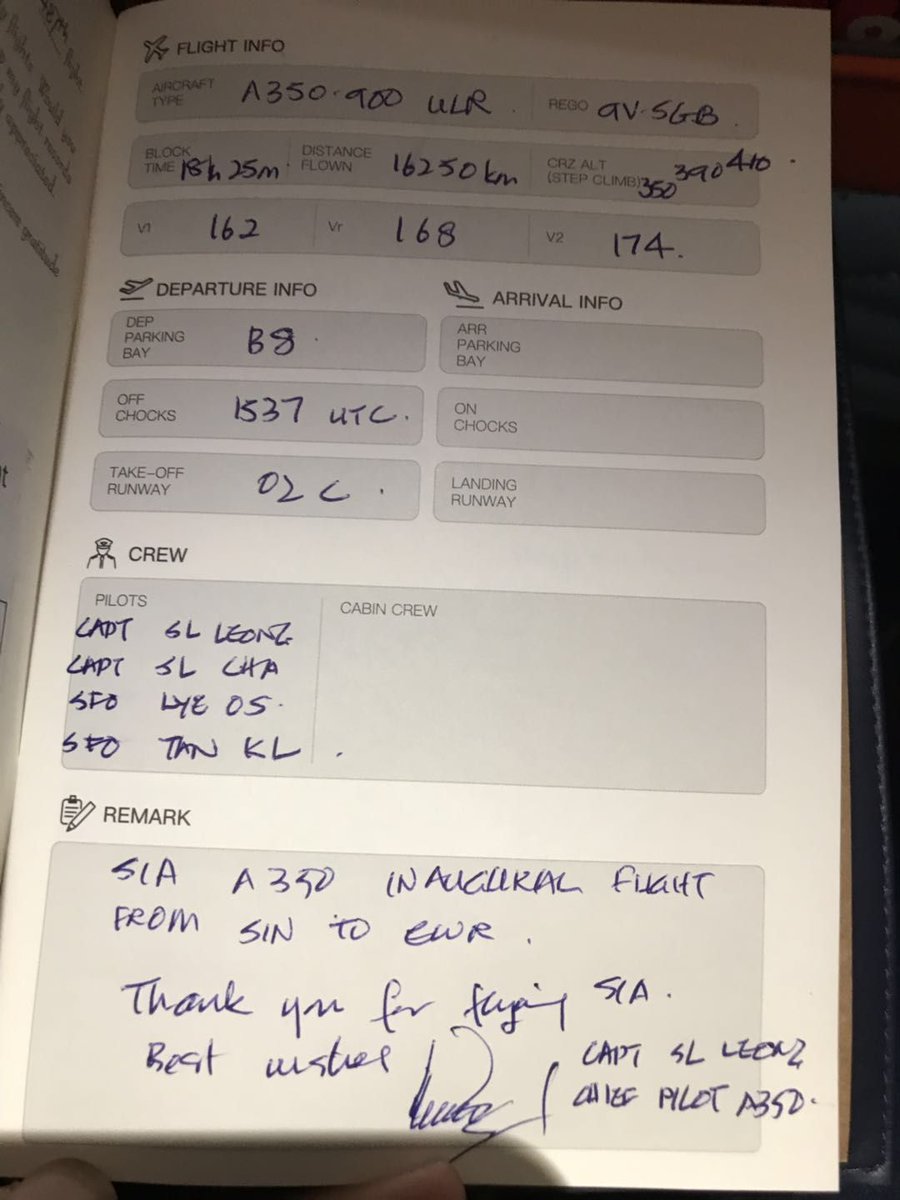 FLIGHT INFO
AIRCRAFT TYPE A350-900 ULR. REGO 9V-SGB.
BLOCK TIME 18h 25m. DISTANCE FLOWN 16250 km CRZ ALT (STEP CLIMB) 350 390 410.
V1 162 Vr 168 V2 174.
DEPARTURE INFO ARRIVAL INFO
DEP PARKING BAY B8. ARR PARKING BAY
OFF CHOCKS 1537 UTC. ON CHOCKS
TAKE-OFF RUNWAY 02C. LANDING RUNWAY
CREW
PILOTS CABIN CREW
CAPT SL LEONG
CAPT SL CHA
SFO LYE OS.
SFO TAN KL.
REMARK
SIA A350 INAUGURAL FLIGHT
FROM SIN TO EWR.
Thank you for flying SIA.
Best wishes
CAPT SL LEONG
CHIEF PILOT A350.